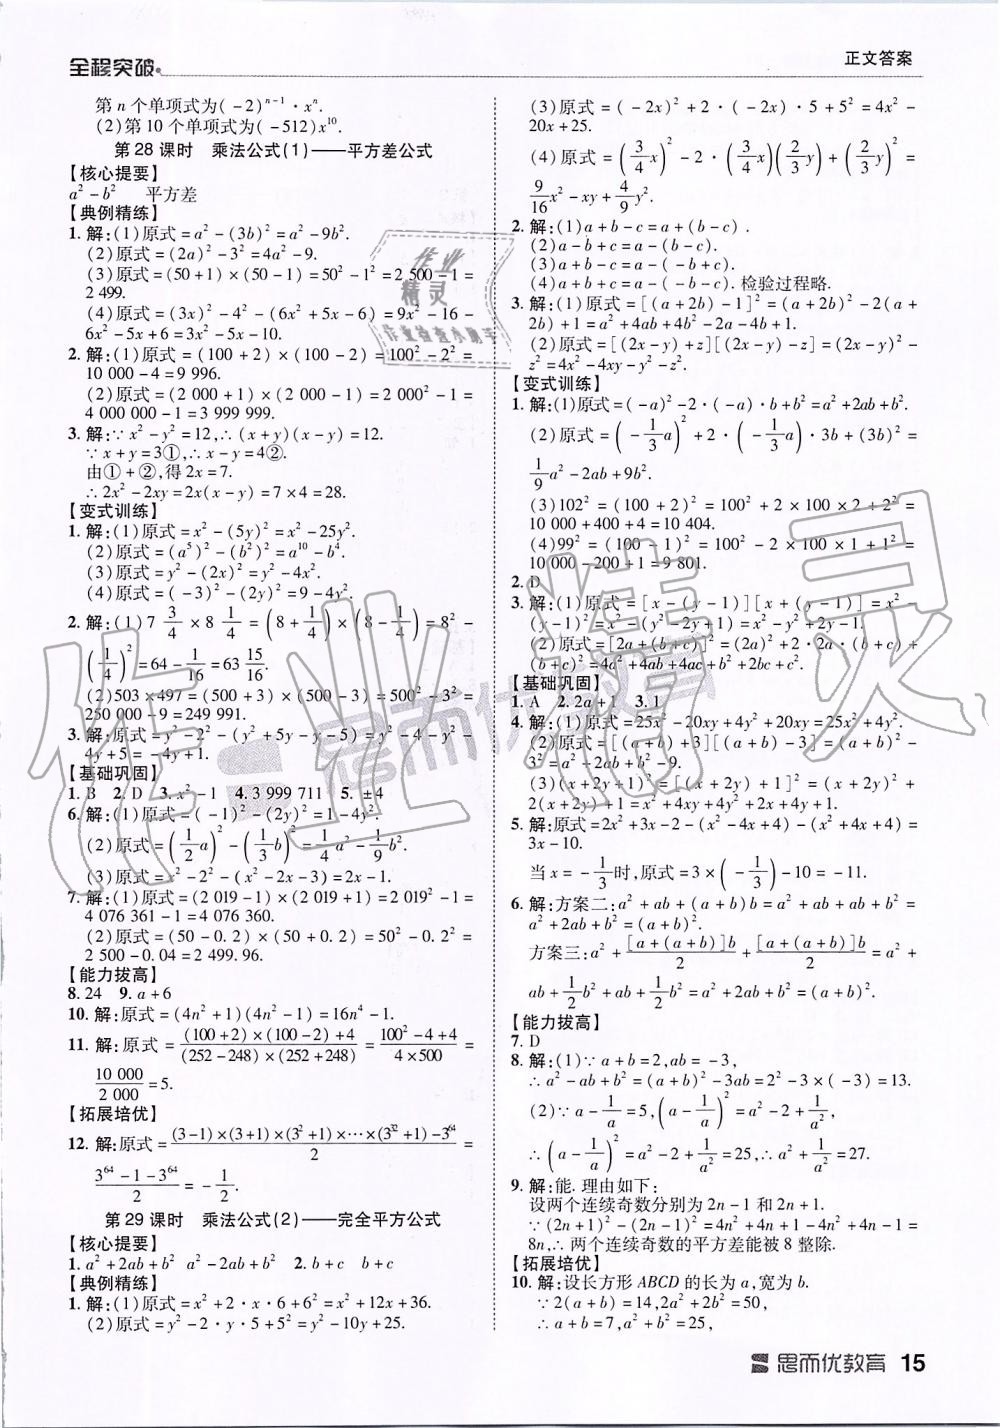 全程突破
正文答案
第 n 个单项式为(-2)^{n-1}·x^n.
(2)第 10 个单项式为(-512)x^{10}.
第 28 课时 乘法公式(1)——平方差公式
【核心提要】
a²-b² 平方差
【典例精练】
1. 解:(1)原式=a²-(3b)²=a²-9b².
(2)原式=(2a)²-3²=4a²-9.
(3)原式=(50+1)×(50-1)=50²-1²=2 500-1=
2 499.
(4)原式=(3x)²-4²-(6x²+5x-6)=9x²-16-
6x²-5x+6=3x²-5x-10.
2. 解:(1)原式=(100+2)×(100-2)=100²-2²=
10 000-4=9 996.
(2)原式=(2 000+1)×(2 000-1)=2 000²-1=
4 000 000-1=3 999 999.
3. 解:∵x²-y²=12,∴(x+y)(x-y)=12.
∵x+y=3①,∴x-y=4②.
由①+②,得 2x=7.
∴2x²-2xy=2x(x-y)=7×4=28.
【变式训练】
1. 解:(1)原式=x²-(5y)²=x²-25y².
(2)原式=(a⁵)²-(b²)²=a^{10}-b⁴.
(3)原式=y²-(2x)²=y²-4x².
(4)原式=(-3)²-(2y)²=9-4y².
2. 解:(1)7 3/4×8 1/4=(8+1/4)×(8-1/4)=8²-
(1/4)²=64-1/16=63 15/16.
(2)503×497=(500+3)×(500-3)=500²-3²=
250 000-9=249 991.
3. 解:原式=y²-2²-(y²+5y-y-5)=y²-4-y²-
4y+5=-4y+1.
【基础巩固】
1. B 2. D 3. x²-1 4. 3 999 711 5. ±4
6. 解:(1)原式=(-1)²-(2y)²=1-4y².
(2)原式=(1/2 a)²-(1/3 b)²=1/4 a²-1/9 b².
(3)原式=x²-2²-(x²-2x-3)=2x-1.
7. 解:(1)原式=(2 019-1)×(2 019+1)=2 019²-1=
4 076 361-1=4 076 360.
(2)原式=(50-0.2)×(50+0.2)=50²-0.2²=
2 500-0.04=2 499.96.
【能力拔高】
8. 24 9. a+6
10. 解:原式=(4n²+1)(4n²-1)=16n⁴-1.
11. 解:原式=[(100+2)×(100-2)+4]/[(252-248)×(252+248)]=(100²-4+4)/(4×500)=
10 000/2 000=5.
【拓展培优】
12. 解:原式=[(3-1)×(3+1)×(3²+1)×⋯×(3^{32}+1)-3^{64}]/2=
(3^{64}-1-3^{64})/2=-1/2.
第 29 课时 乘法公式(2)——完全平方公式
【核心提要】
1. a²+2ab+b² a²-2ab+b² 2. b+c b-c
【典例精练】
1. 解:(1)原式=x²+2·x·6+6²=x²+12x+36.
(2)原式=y²-2·y·5+5²=y²-10y+25.
(3)原式=(-2x)²+2·(-2x)·5+5²=4x²-
20x+25.
(4)原式=(3/4 x)²-2·(3/4 x)(2/3 y)+(2/3 y)²=
9/16 x²-xy+4/9 y².
2. 解:(1)a+b-c=a+(b-c).
(2)a-b+c=a-(b-c).
(3)a-b-c=a-(b+c).
(4)a+b+c=a-(-b-c). 检验过程略.
3. 解:(1)原式=[(a+2b)-1]²=(a+2b)²-2(a+
2b)+1=a²+4ab+4b²-2a-4b+1.
(2)原式=[(2x-y)+z][(2x-y)-z]=(2x-y)²-
z²=4x²-4xy-y²-z².
【变式训练】
1. 解:(1)原式=(-a)²-2·(-a)·b+b²=a²+2ab+b².
(2)原式=(-1/3 a)²+2·(-1/3 a)·3b+(3b)²=
1/9 a²-2ab+9b².
(3)102²=(100+2)²=100²+2×100×2+2²=
10 000+400+4=10 404.
(4)99²=(100-1)²=100²-2×100×1+1²=
10 000-200+1=9 801.
2. D
3. 解:(1)原式=[x-(y-1)][x+(y-1)]=x²-
(y-1)²=x²-(y²-2y+1)=x²-y²+2y-1.
(2)原式=[2a+(b+c)]²=(2a)²+2·2a·(b+c)+
(b+c)²=4a²+4ab+4ac+b²+2bc+c².
【基础巩固】
1. A 2. 2a+1 3. 1
4. 解:(1)原式=25x²-20xy+4y²+20xy=25x²+4y².
(2)原式=[(a+b)+3][(a+b)-3]=(a+b)²-
3²=a²+2ab+b²-9.
(3)(x+2y+1)²=[(x+2y)+1]²=(x+2y)²+
2(x+2y)+1=x²+4xy+4y²+2x+4y+1.
5. 解:原式=2x²+3x-2-(x²-4x+4)-(x²+4x+4)=
3x-10.
当 x=-1/3时,原式=3×(-1/3)-10=-11.
6. 解:方案二:a²+ab+(a+b)b=a²+ab+ab+b²=
a²+2ab+b²=(a+b)².
方案三:a²+[a+(a+b)]b/2+[a+(a+b)]b/2=a²+
ab+1/2 b²+ab+1/2 b²=a²+2ab+b²=(a+b)².
【能力拔高】
7. D
8. 解:(1)∵a+b=2,ab=-3,
∴a²-ab+b²=(a+b)²-3ab=2²-3×(-3)=13.
(2)∵a-1/a=5,(a-1/a)²=a²-2+1/a²,
∴(a-1/a)²=a²-2+1/a²=25,∴a²+1/a²=27.
9. 解:能. 理由如下:
设两个连续奇数分别为 2n-1 和 2n+1.
∵(2n+1)²-(2n-1)²=4n²+4n+1-4n²+4n-1=
8n,∴两个连续奇数的平方差能被 8 整除.
【拓展培优】
10. 解:设长方形 ABCD 的长为 a,宽为 b.
∵2(a+b)=14,2a²+2b²=50,
∴a+b=7,a²+b²=25,
思而优教育 15
作业精灵
作业检查小助手
作业精灵
思而优教育